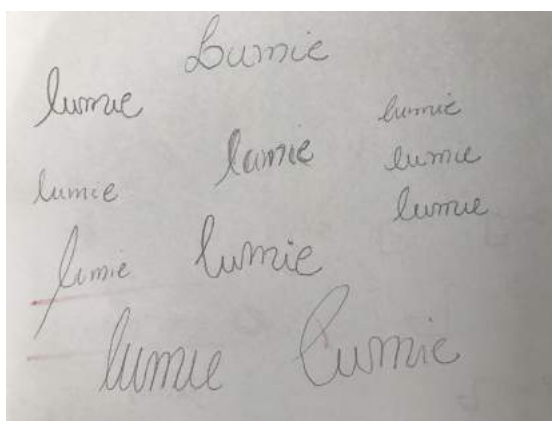 Lumie
lumie
lumie
lumie
lumie
lumie
lumie
lumie
lumie
lumie
lumie
Lumie